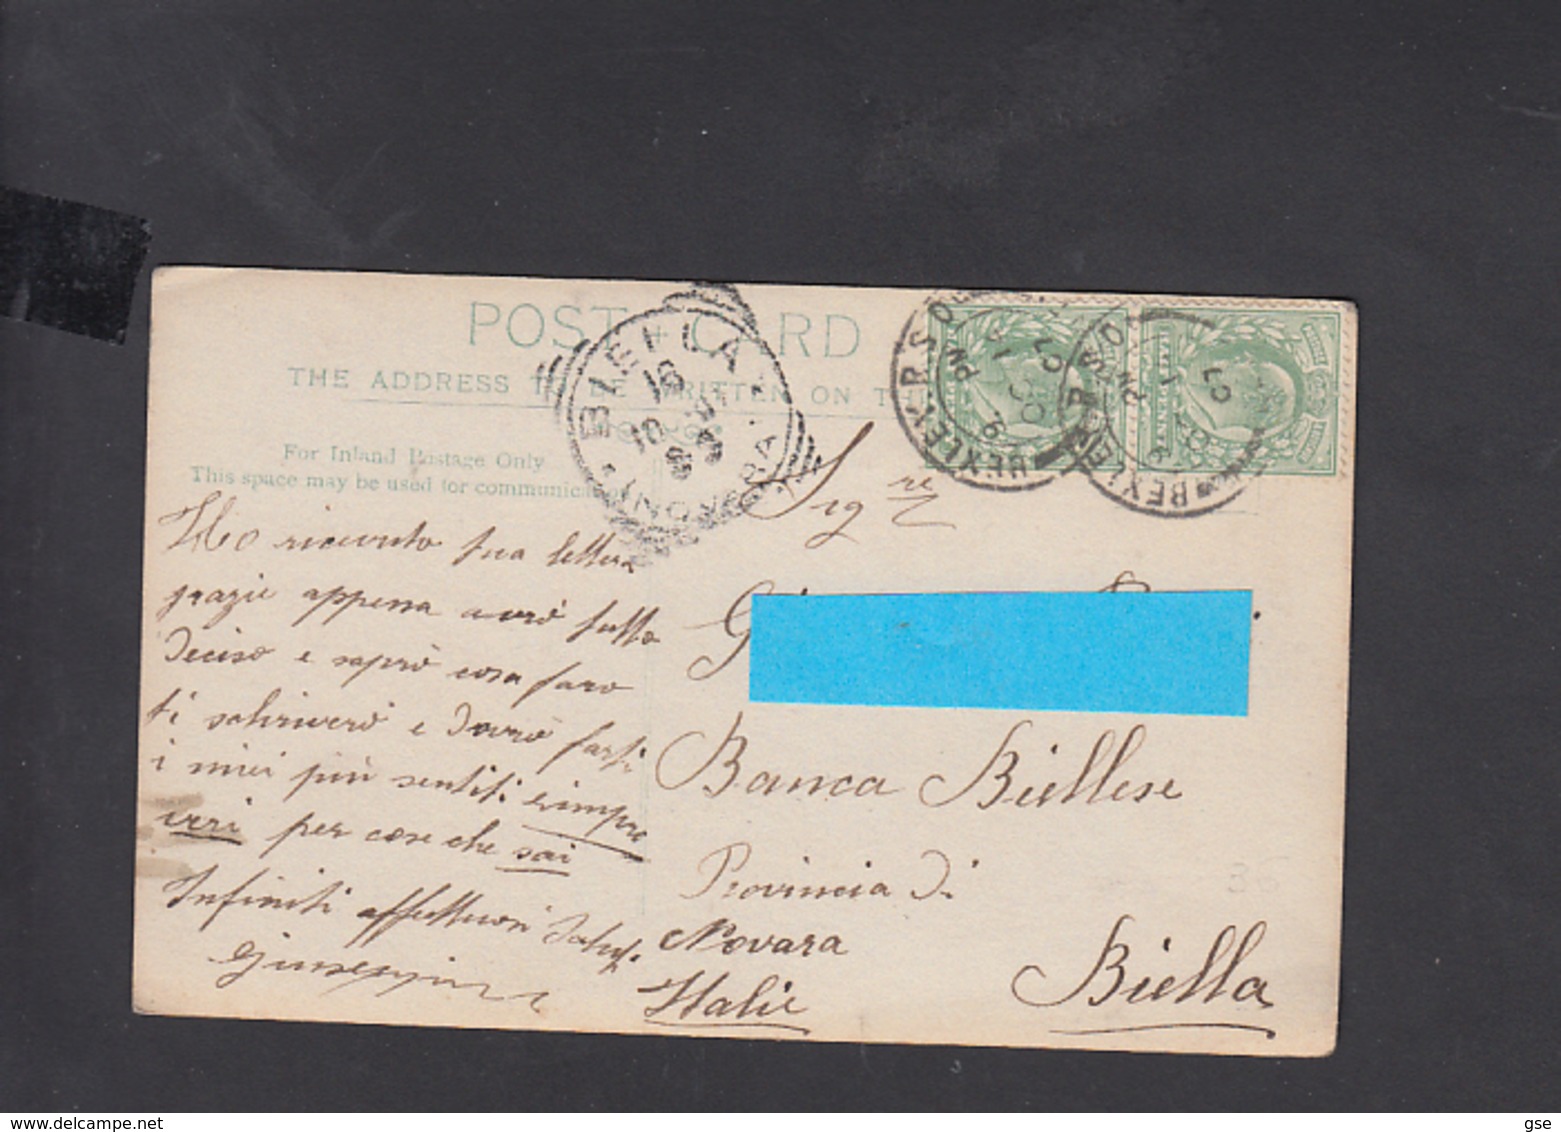 POST CARD
THE ADDRESS TO BE WRITTEN ON TH
For Inland Postage Only
This space may be used for communication
BIELLA
NOVARA
BEXLEY
BEXLEY
07
07
Sig re
G
Banca Biellese
Provincia di
Novara
Italie
Biella
Ho ricevuto tua lettera
grazie appena avrò tutto
deciso e saprò cosa farò
ti scriverò e dovrò farti
i miei più sentiti
per cose che sai
Infiniti affettuosi Saluti
delcampe.net
gse